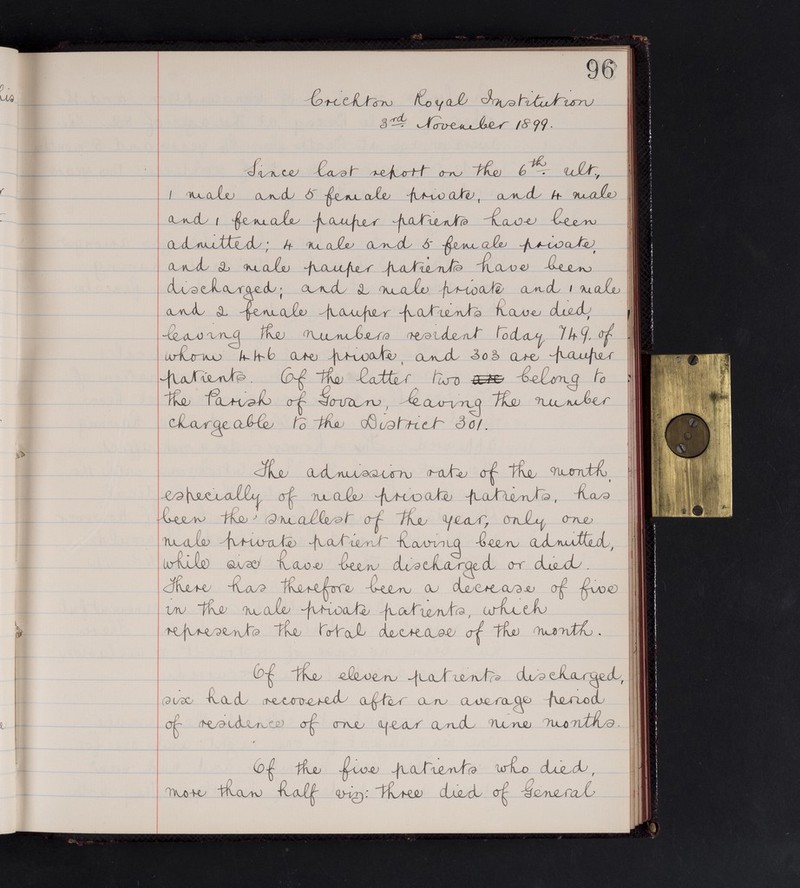 96
Crichton Royal Institution
3rd November 1899.
Since last report on the 6th ult,
1 male and 5 female private, and 4 male
and 1 female pauper patients have been
admitted; 4 male and 5 female private,
and 2 male pauper patients have been
discharged; and 2 male private and 1 male
and 2 female pauper patients have died,
leaving the numbers resident today 749, of
whom 446 are private, and 303 are pauper
patients. Of the latter two are belong to
the Parish of Govan, leaving the number
chargeable to the District 301.
The admission rate of the month,
especially of male private patients, has
been the smallest of the year, only one
male private patient having been admitted,
while six have been discharged or died.
There has therefore been a decrease of five
in the male private patients, which
represents the total decrease of the month.
Of the eleven patients discharged,
six had recovered after an average period
of residence of one year and nine months.
Of the five patients who died,
more than half viz: three died of General